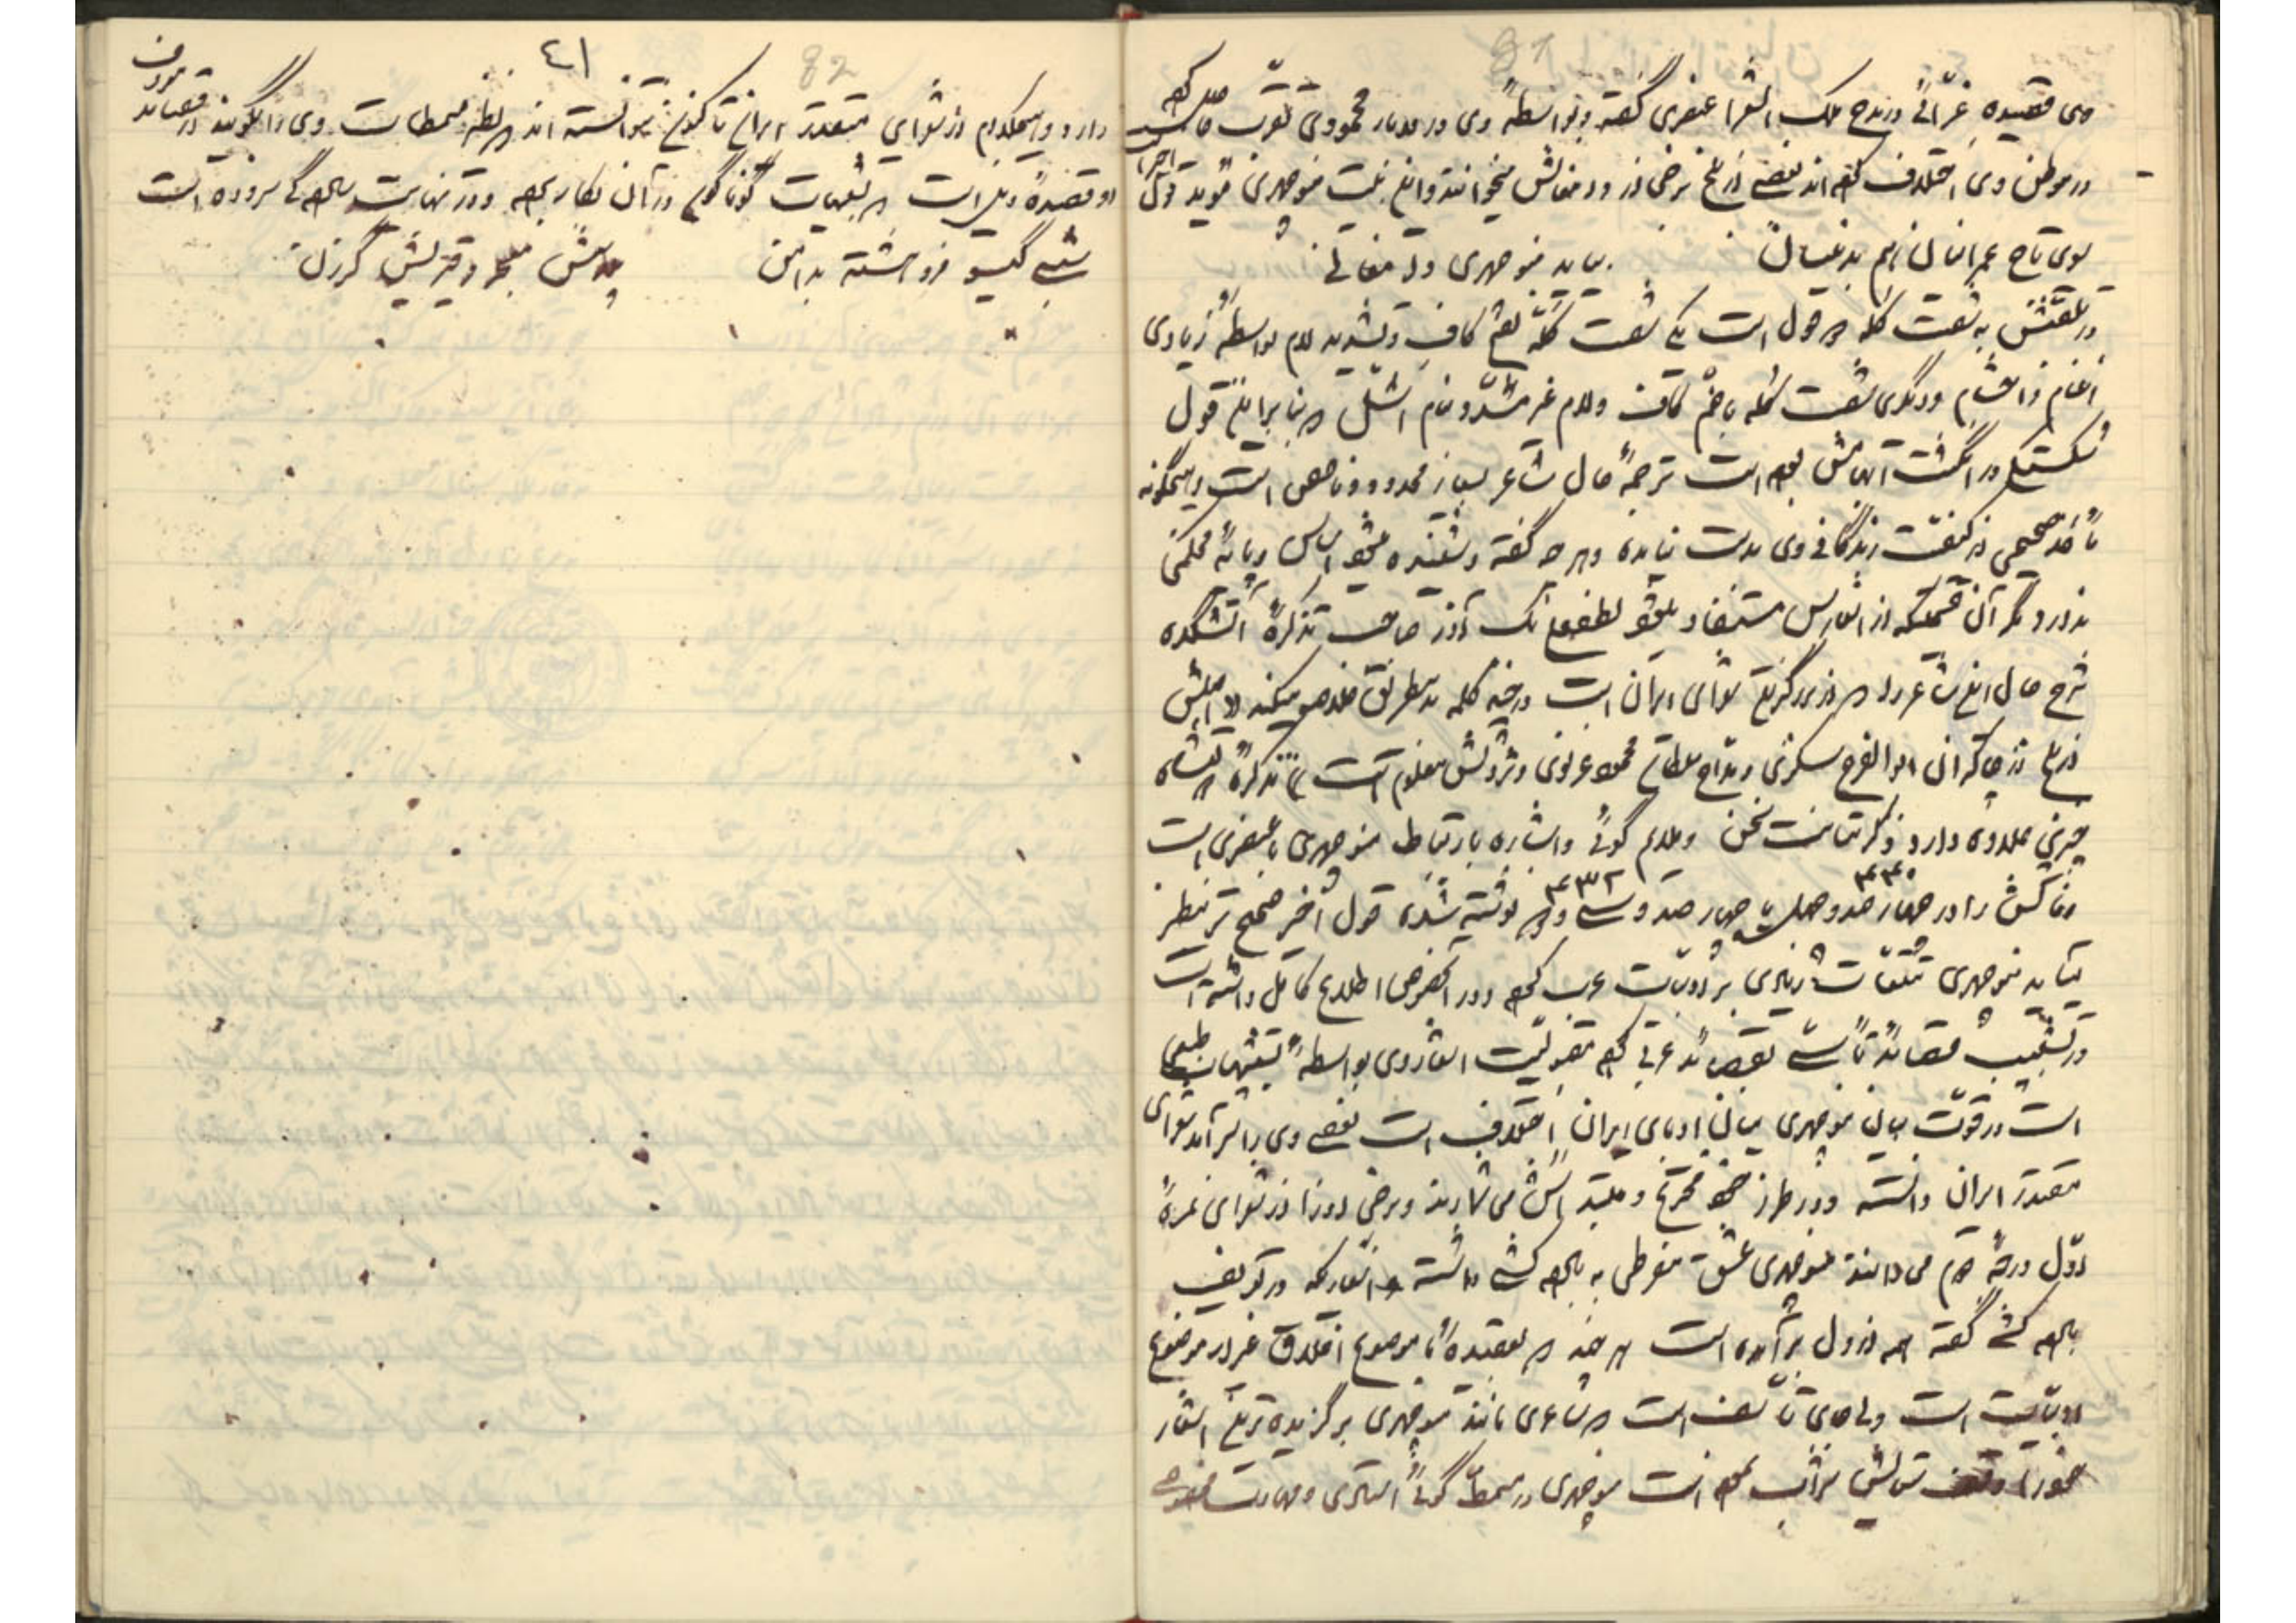 81
وی قصیدهٔ غرّائی در مدح ملک الشعرا عنصری گفته و بواسطهٔ وی در دربار محمودی تقرّب حاصل کرده
در موطن وی اختلاف کرده‌اند بعضی از بلخ برخی از و دامغانش میخوانند و این بیت منوچهری مؤید قول اخیر است
سوی تاج عمرانیان هم بدینسان
بیامد منوچهری دامغانی
در تلقبش به شصت کله دو قول است یکی شصت کلّه بفتح کاف و تشدید لام بواسطهٔ زیادی
اغنام و احشام و دیگری شصت کله با ضمّ کاف و لام غیر مشدّد بنام اشلّ که بنا براین قول
شکستگی در انگشت ابهامش بوده است ترجمهٔ حال شاعر بسیار محدود و ناقص است و هیچگونه
مأخذ صحیحی از کیفیّت زندگانی وی بدست نیامده و هر چه گفته و شنیده میشود اساس و پایهٔ محکمی
ندارد مگر آن قسمتیکه از اشعارش مستفاد میشود لطفعلی بیک آذر صاحب تذکرهٔ آتشکده
شرح حال این شاعر را که از بزرگترین شعرای ایران است در چند کلمه بدینطریق خلاصه میکند «اصلش
از بلخ از شاگردان ابوالفرج سکزی و مدّاح سلطان محمود غزنوی و ثروتش معلوم است» تذکرهٔ دولتشاه
چیزی علاوه دارد ذکر متانت سخن و ملایم گوئی و اشاره بارتباط منوچهری با عنصری است
۴۴۰ ۴۳۲
وفاتش را در چهار صد و چهل یا چهار صد و سی و دو نوشته شده قول اخیر صحیح تر بنظر
میآید منوچهری تتبّعات زیادی بر ادبیّات عرب کرده و در اینخصوص اطلاع کامل داشته است
در تشبیب قصائد تأسّی بقصائد عربی کرده مقبولیّت اشعار وی بواسطهٔ تشبیهات طبیعی
است در قوّت بیان منوچهری میان ادبای ایران اختلاف است بعضی وی را سرآمد شعرای
مقتدر ایران دانسته و در طرز خود مخترع و مبتدعش می شمارند و برخی او را از شعرای نمرهٔ
اوّل درجهٔ دوّم می دانند منوچهری عشق مفرطی به باده کشی داشته و اشعاریکه در تعریف
باده کشی گفته همه از دل برآمده است هر چند که بعقیدهٔ ما موضوع اخلاق غیر از موضوع
ادبیّات است ولی جای تأسّف است که شاعری مانند منوچهری برگزیده ترین اشعار
خود را وقف ستایش شراب کرده است منوچهری در مسمّط گوئی استادی و مهارت مخصوصی
٤١
82
دارد و هیچکدام از شعرای مقتدر ایران تاکنون نتوانسته اند که نظیر مسمطات وی را بگویند در قصاید معروف
او قصیدهٔ ذیل است که تشبیهات گوناگون در آن بکار برده و در نهایت سادگی سروده است
شبی گیسو فروهشته بدامن
پلاسش معجر و قیرینش گرزن